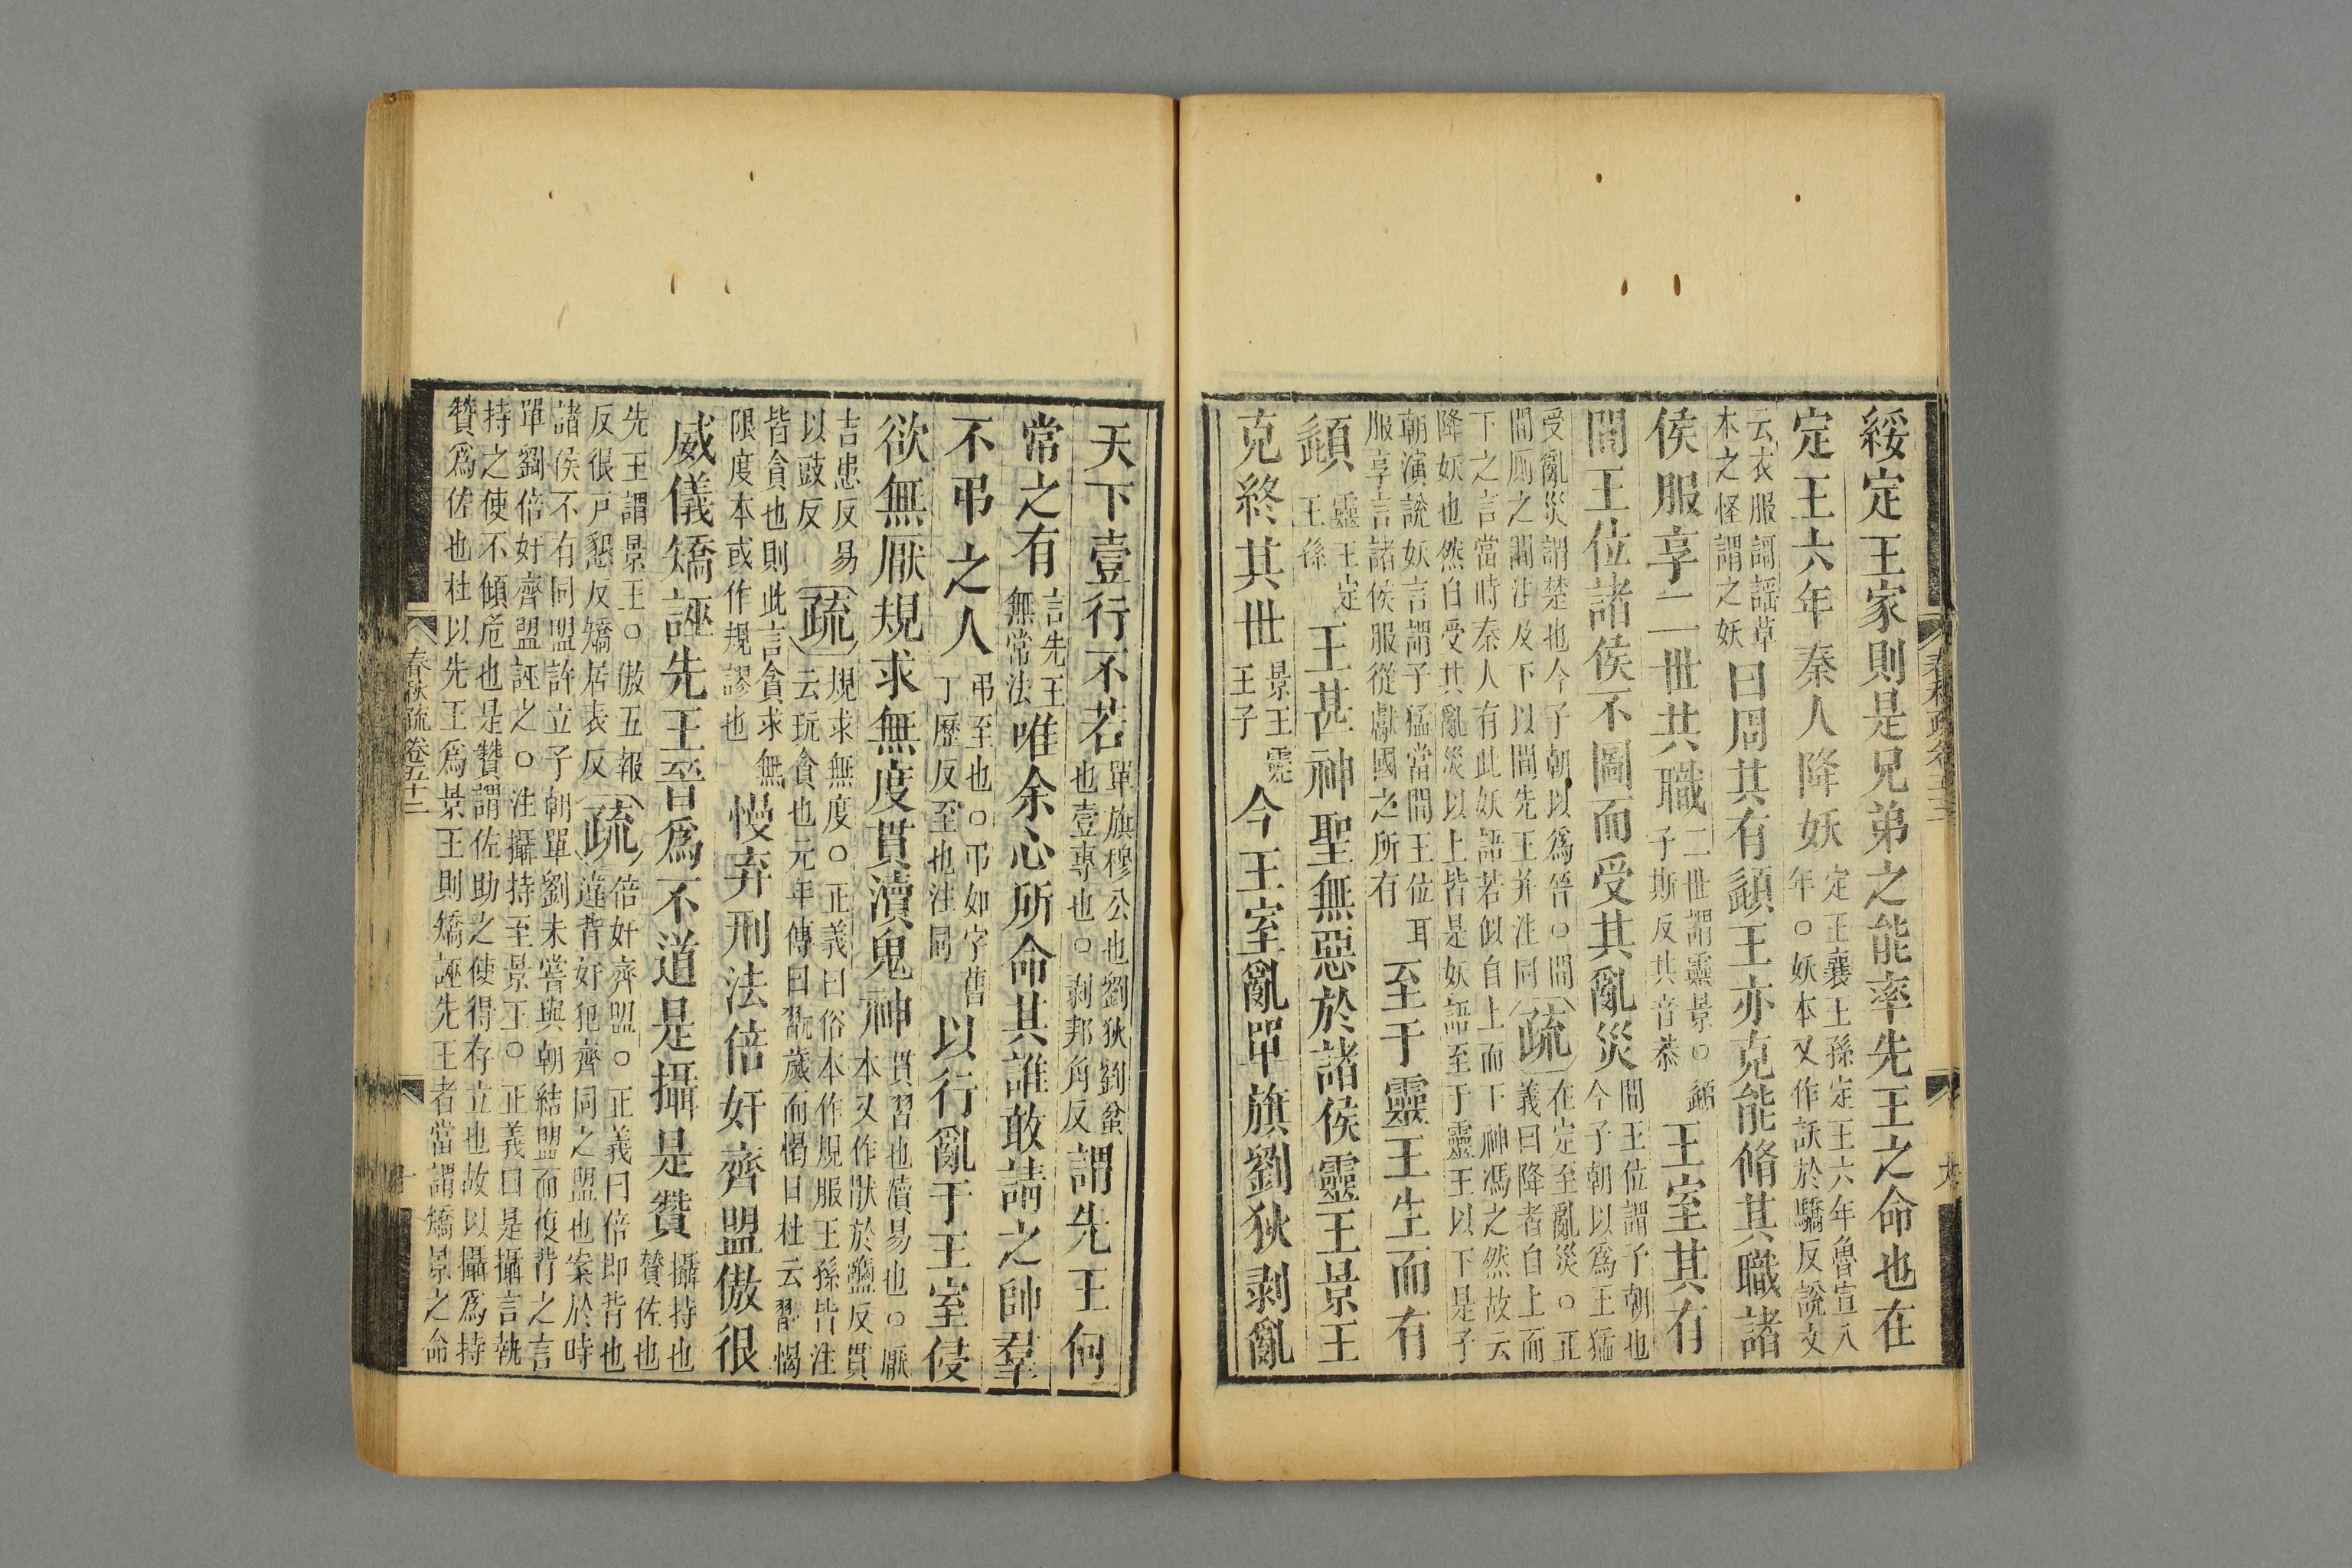 綏定王家則是兄弟之能率先王之命也在
定王六年秦人降妖定王襄王孫定王六年魯宣八
年○妖本又作訞於驕反說文
云衣服謌謡草
木之怪謂之妖曰周其有頿王亦克能脩其職諸
侯服享二世共職二世謂靈景○頿
子斯反共音恭王室其有
間王位諸侯不圖而受其亂災間王位謂子朝也
今子朝以爲王猛
受亂災謂楚也今子朝以爲晉○間
間厠之間注及下以間先王并注同疏在定至亂災○正
義曰降者自上而
下之言當時秦人有此妖語若似自上而下神馮之然故云
降妖也然自受其亂災以上皆是妖語至于靈王以下是子
朝演說妖言謂子猛當間王位耳
服享言諸侯服從獻國之所有至于靈王生而有
頿靈王定
王孫王甚神聖無惡於諸侯靈王景王
克終其世景王靈
王子今王室亂單旗劉狄剥亂
春秋疏卷五十二
天下壹行不若單旗穆公也劉狄劉蚠
也壹專也○剥邦角反謂先王何
常之有言先王
無常法唯余心所命其誰敢請之帥羣
不弔之人弔至也○弔如字舊
丁歷反至也注同以行亂于王室侵
欲無厭規求無度貫瀆鬼神貫習也瀆易也○厭
本又作猒於鹽反貫
古患反易
以豉反疏規求無度○正義曰俗本作規服王孫皆注
云玩貪也元年傳曰翫歲而愒日杜云翫愒
皆貪也則此言貪求無
限度本或作規謬也慢弃刑法倍奸齊盟傲很
威儀矯誣先王晉爲不道是攝是贊攝持也
贊佐也
先王謂景王○傲五報
反很戸懇反矯居表反疏倍奸齊盟○正義曰倍即背也
違背奸犯齊同之盟也案於時
諸侯不有同盟許立子朝單劉未嘗與朝結盟而復背之言
單劉倍奸齊盟誣之○注攝持至景王○正義曰是攝言執
持之使不傾危也是贊謂佐助之使得存立也故以攝爲持
贊爲佐也杜以先王爲景王則矯誣先王者當謂矯景之命
春秋疏卷五十二